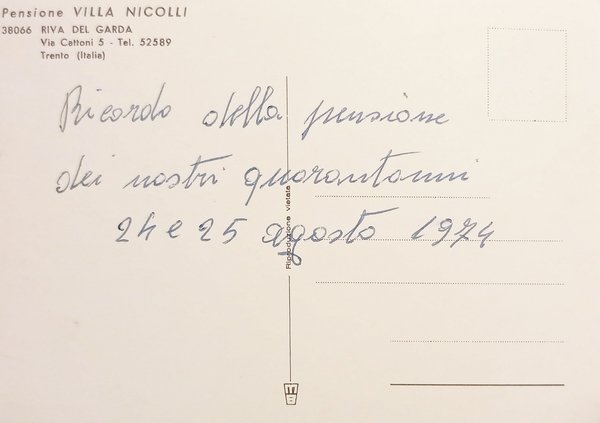 Pensione VILLA NICOLLI
38066 RIVA DEL GARDA
Via Cattoni 5 - Tel. 52589
Trento (Italia)
Ricordo della pensione
dei nostri quarantanni
24 e 25 agosto 1974
Riproduzione vietata